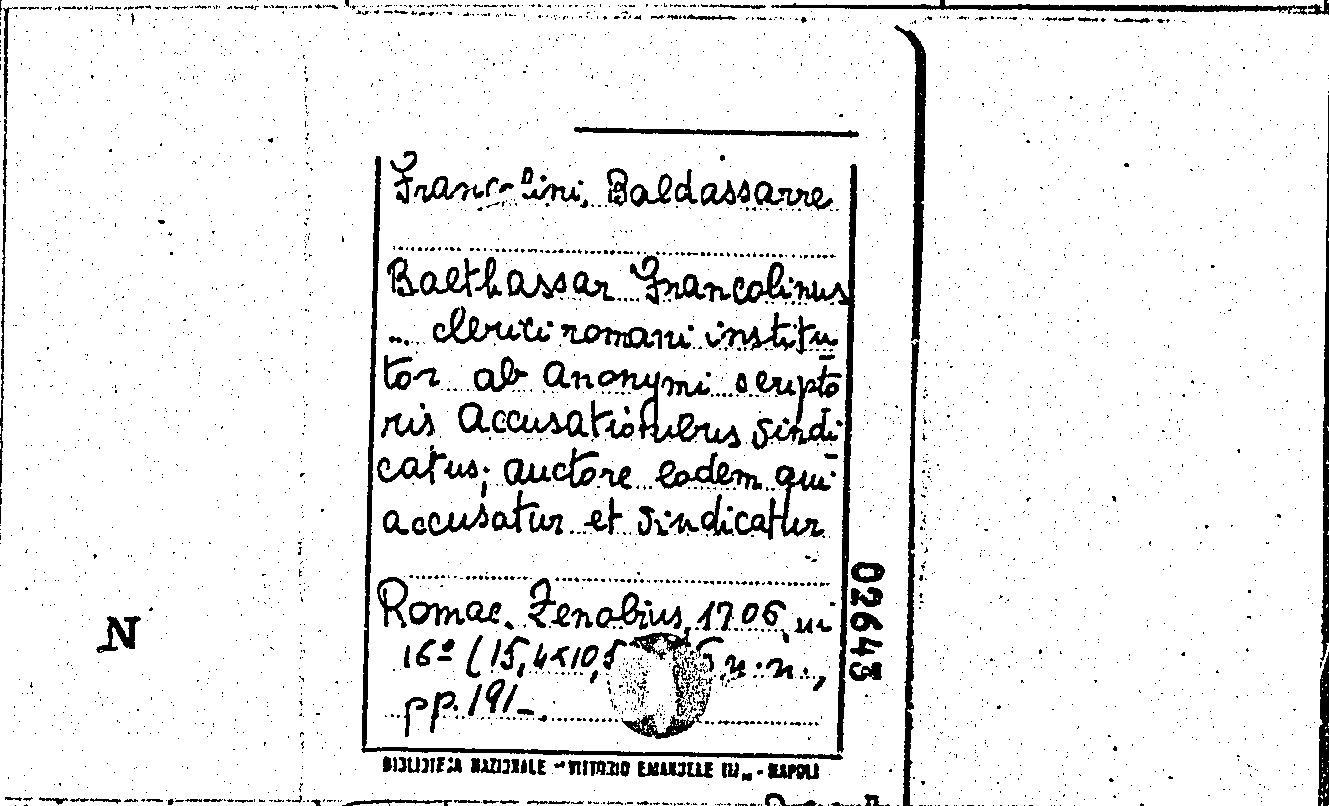 Francolini, Baldassarre
Balthassar Francolinus
... clerici romani institu
tor ab anonymi scripto
ris accusationibus sindi
catus; auctore eodem qui
accusatur et sindicatur
Romae, Zenobius, 1706, in
16º (15,4x10,5 5 n.n.,
pp. 191-.
BIBLIOTECA NAZIONALE "VITTORIO EMANUELE III" - NAPOLI
02643
N